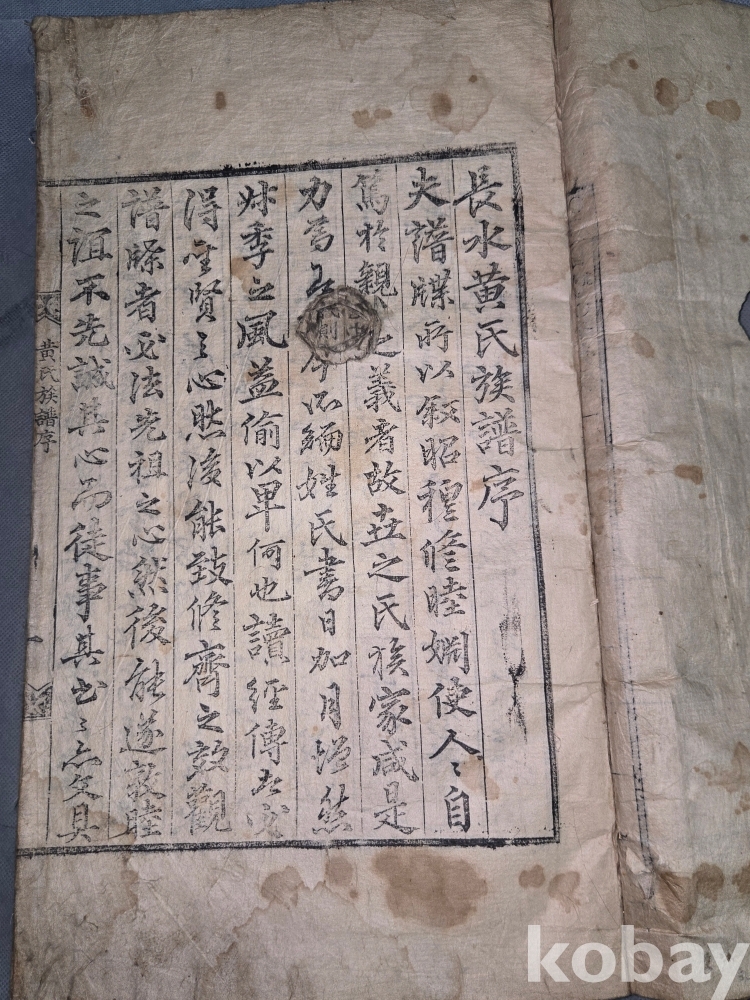 長水黃氏族譜序
夫譜牒所以叙昭穆修睦婣使人〻自
篤於親之義者故世之氏族家咸是
力焉 編姓氏書日加月增然
叔季之風益偷以卑何也讀經傳者必
得聖賢之心然後能致修齊之效觀
譜牒者必法先祖之心然後能遂敦睦
之誼不先誠其心而徒事其書〻亦文具
黃氏族譜序
一
kobay